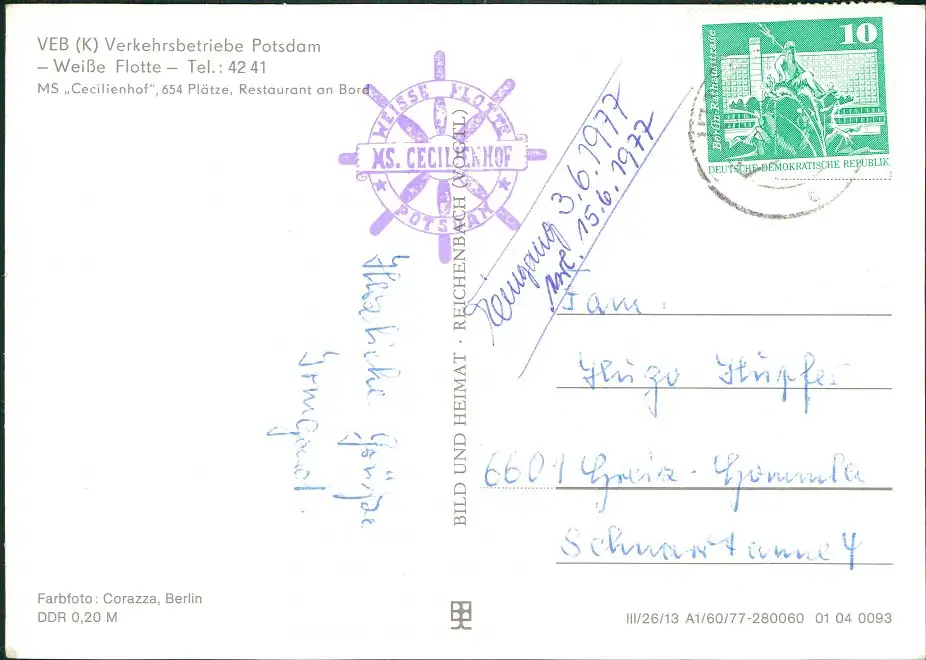 VEB (K) Verkehrsbetriebe Potsdam
– Weiße Flotte – Tel.: 42 41
MS „Cecilienhof", 654 Plätze, Restaurant an Bord
WEISSE FLOTTE
MS. CECILIENHOF
POTSDAM
Berlin · Rathausstraße
10
DEUTSCHE DEMOKRATISCHE REPUBLIK
Eingang 3.6.1977
15.6.1977
Herzliche Grüße
Irmgard
BILD UND HEIMAT · REICHENBACH (VOGTL)
Fam.
Hugo Hupfer
6601 Greiz - Gommla
Schnarrtanne 4
Farbfoto: Corazza, Berlin
DDR 0,20 M
III/26/13 A1/60/77-280060 01 04 0093